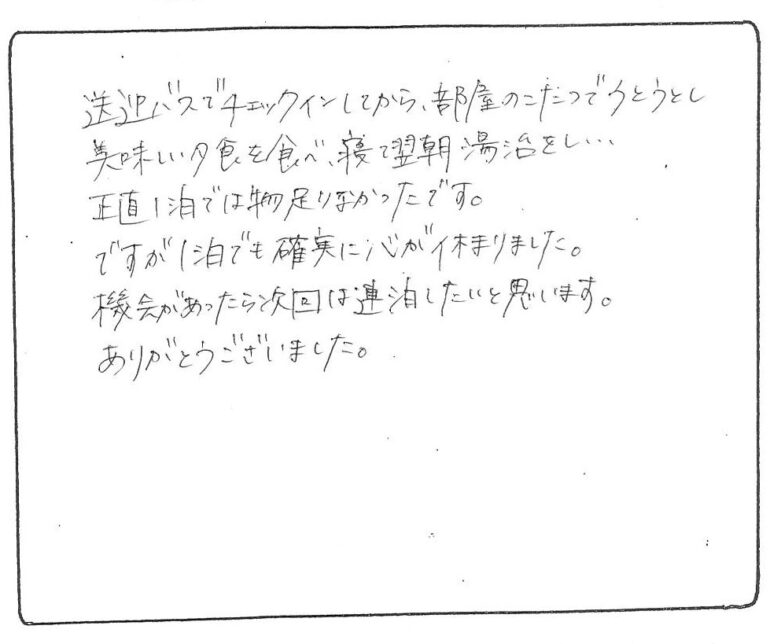 送迎バスでチェックインしてから、部屋のこたつでうとうとし
美味しい夕食を食べ、寝て翌朝湯治をし…
正直1泊では物足りなかったです。
ですが1泊でも確実に心が休まりました。
機会があったら次回は連泊したいと思います。
ありがとうございました。